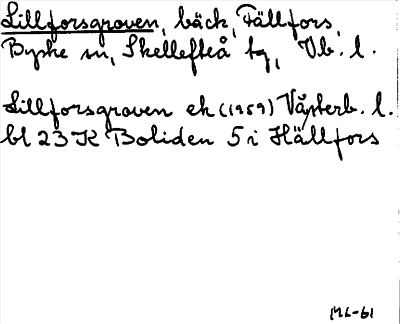 Lillforsgraven, bäck, Fällfors,
Byske sn, Skellefteå tg, Vb. l.
Lillforsgraven ek (1959) Västerb. l.
bl 23 K Boliden 5 i Hällfors